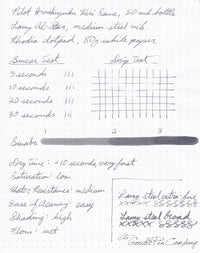 Pilot Iroshizuku Kiri Same, 50ml bottle
Lamy Al-Star, medium steel nib
Rhodia dotpad, 80g white paper
Smear Test
Dry Test
5 seconds
10 seconds
20 seconds
30 seconds
1 2 3
Swabs
Dry Time: ~10 seconds, very fast
Saturation: low
Water Resistance: medium
Ease of cleaning: easy
Shading: high
Flow: wet
Lamy steel extra-fine
xxxxxx
Lamy steel broad
xxxxxx
The Goulet Pen Company